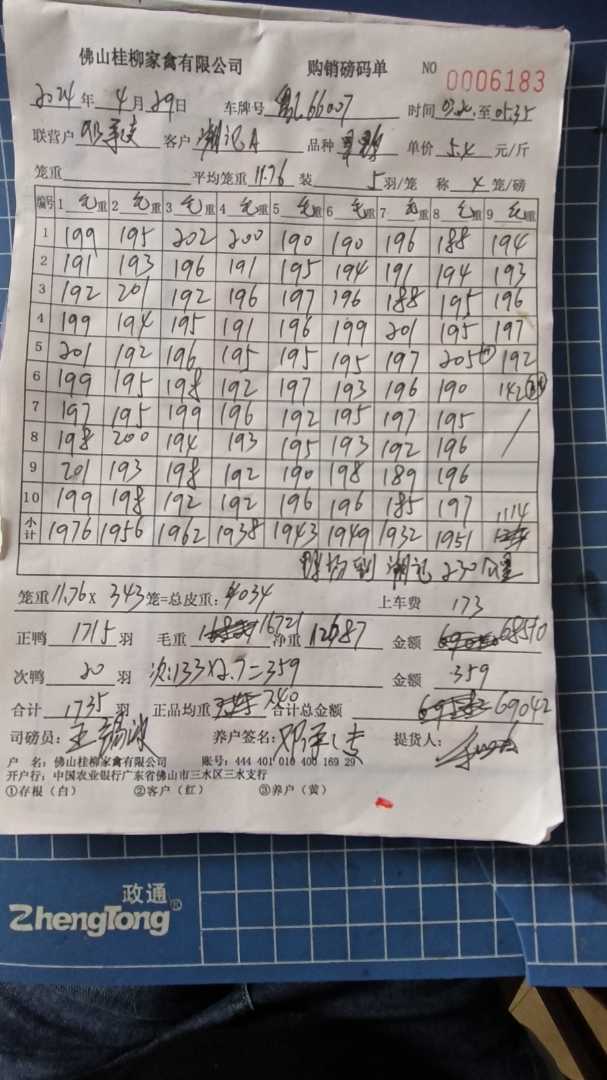 佛山桂柳家禽有限公司 购销磅码单 NO 0006183
2024年 4月 29日 车牌号 66007 时间 至 05:35
联营户 客户 湘记A 品种 单价 5.4 元/斤
笼重 平均笼重 11.76 装 5 羽/笼 称 4 笼/磅
编号 1 毛重 2 毛重 3 毛重 4 毛重 5 毛重 6 毛重 7 毛重 8 毛重 9 毛重
1 199 195 202 200 190 190 196 188 194
2 191 193 196 191 195 194 191 194 193
3 192 201 192 196 197 196 188 195 196
4 199 194 195 191 196 199 201 195 197
5 201 192 196 195 195 195 197 205 192
6 199 195 198 192 197 193 196 190 142
7 197 195 199 196 192 195 197 195 /
8 198 200 194 193 195 193 192 196
9 201 193 198 192 190 198 189 196
10 199 198 192 192 196 196 185 197
小计 1976 1956 1962 1938 1943 1949 1932 1951 1114
到 湘记 230公里
笼重 11.76 x 343 笼=总皮重: 4034 上车费 173
正鸭 1715 羽 毛重 16721 净重 12687 金额 68510
次鸭 20 羽 次:133×2.7=359 金额 359
合计 1735 羽 正品均重 7.40 合计总金额 69042
司磅员: 养户签名: 提货人:
户 名: 佛山桂柳家禽有限公司 账号: 444 401 010 400 169 29
开户行: 中国农业银行广东省佛山市三水区三水支行
①存根(白) ②客户(红) ③养户(黄)
政通
ZhengTong®